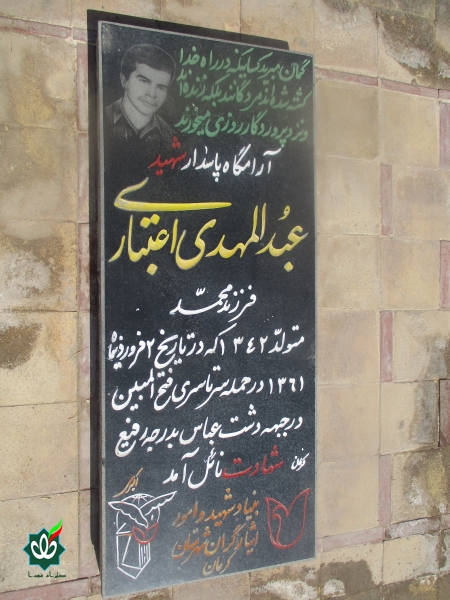 گمان مبرید کسانیکه در راه خدا
کشته شده‌اند مردگانند بلکه زنده‌اند
و نزد پروردگار روزی میخورند
آرامگاه پاسدار شهید
عبدالمهدی اعتباری
فرزند محمّد
متولّد ۱۳۴۲ که در تاریخ ۲ فروردینماه
۱۳۶۱ در حمله سرتاسری فتح المبین
در جبهه دشت عباس بدرجه رفیع
شهادت نائل آمد
بنیاد شهید و امور
ایثارگران شهرستان
کرمان